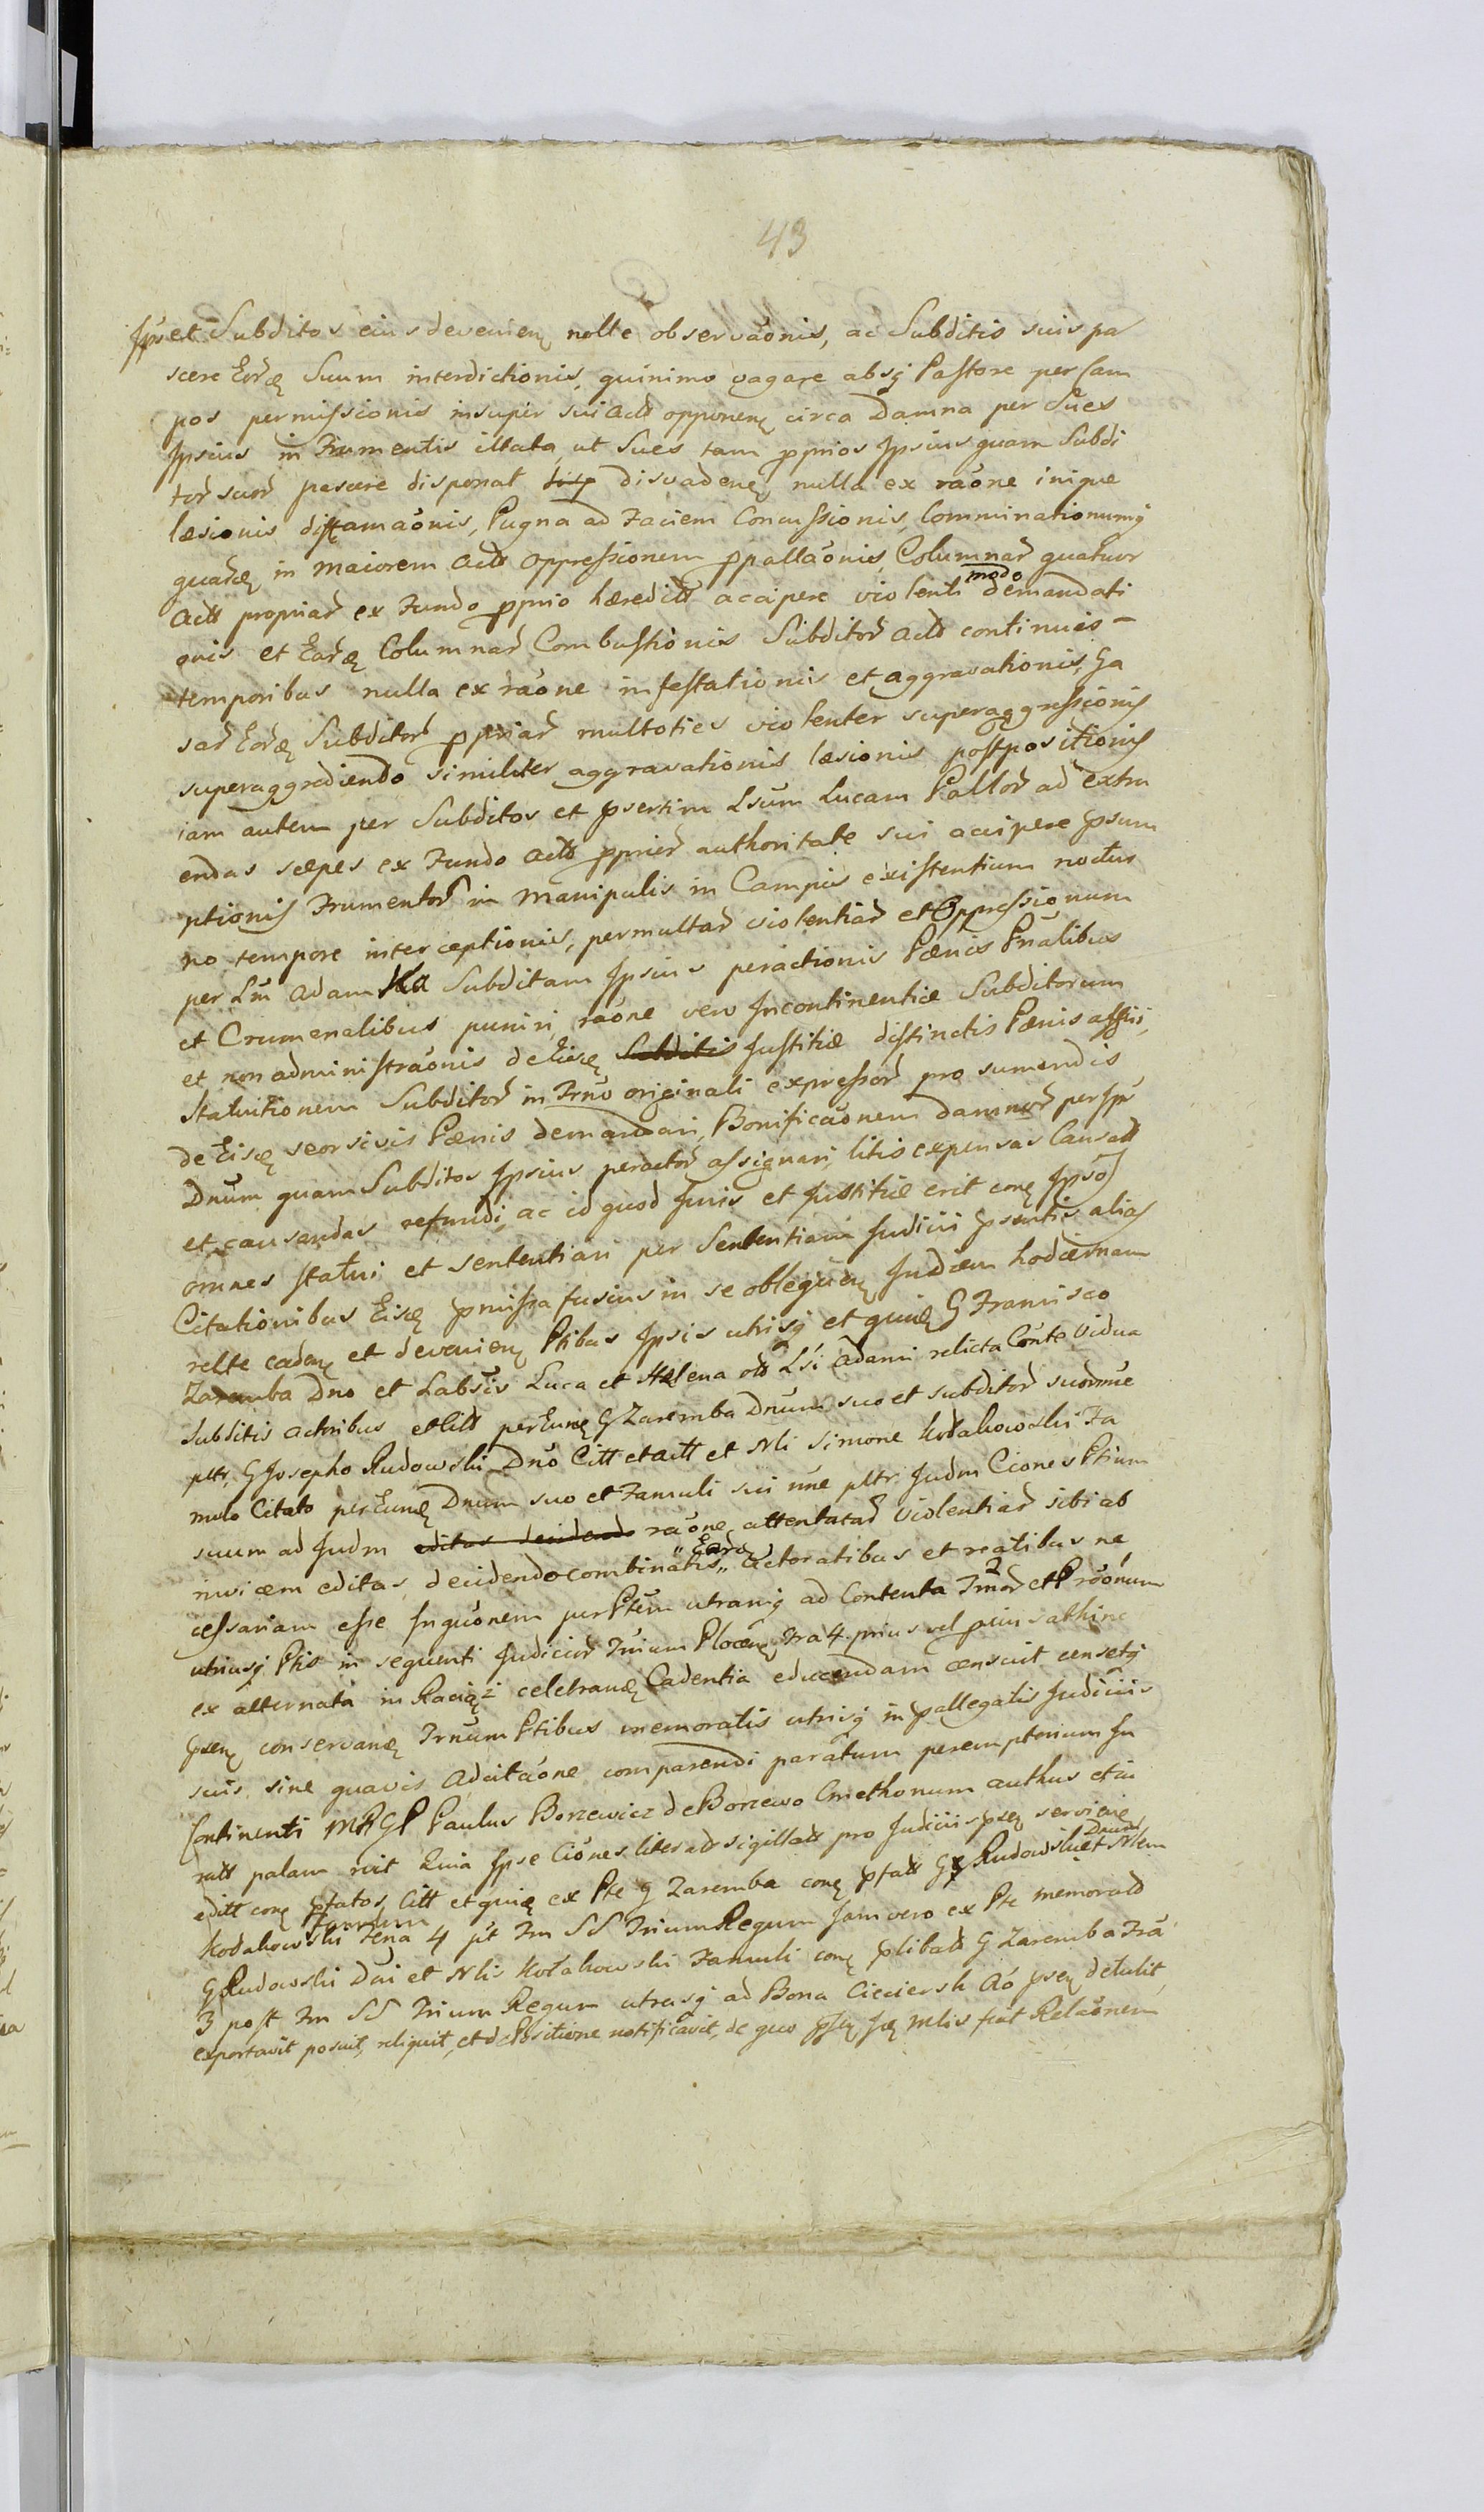 43
Ips et Subditos eius devenien nolle observaonis, ac Subditis suis pa
scere Eordę Suum interdictionis, quinimo vagare absq Pastore per Cam
pos permissionis insuper sui Actt opponenę circa Damna per Sues
Ipsius in Frumentis illata ut Sues tam pprios Ipsius quam Subdi
tor suor pascere disponat disvadenę nulla ex raone inique
læsionis diffamaonis, Pugna ad Faciem Concussionis, Comminationumq
quarę in maiorem actt oppressionem ppallaonis, Columnar quatuor
Actt propriar ex Fundo pprio hæreditt accipere violenti modo demandati
onis et Earę Columnar Combustionis Subditor actt continuis -
temporibus nulla ex raone infestationis et aggravationis, Ca
sar Eorę Subditor ppriar multoties violenter superaggressionis
superaggrediendo similiter aggravationis læsionis postpositionis
iam autem per Subditos et psertim Lsum Lucam Pallor ad extru
endas sæpes ex Fundo actt pprier authoritate sui accipere psum
ptionis Frumentor in manipulis in Campis existentium noctur
no tempore interceptionis, permultar violentiar et Oppressionum
per Lm Adam Ka Subditam Ipsius peractionis Pænis Pnalibus
et Crumenalibus puniri, raone vero Incontinentiæ Subditorum
et non administraonis de Eisę Subditis Justitiæ distinctis Pænis affici,
Statuitionem Subditor in Trno originali expressor pro sumendis
de Eisę seorsivis Pænis demandari, Bonificaonem damnor per Ips
Dnum quam Subditos Ipsius peractor assignari, litis expensas Causatt
et causandas refundi, ac id quod Juris et Justitiæ erit conę Ipsos
omnes statui et sententiari per Sententiam Judicii psentis alias
Citationibus Eisę pmissa fusius in se obloquenę Judicem hodiernam
relte cadenę et devenienę Ptibus Ipsis utrisq et quidę G Francisco
Zaremba Dno et Labsis Luca et Helena ott Lsi Adami relicta Conte Vidua
Subditis actribus et Citt per Eunę G Zaremba Dnum suo et subditor suorum
pltr, G Josepho Rudowski Dno Citt et actt et Nli Simone Kołakowski Fa
mulo Citato per Eunę Dnum suo et Famuli sui nne pltr Judm Ciones Ptium
suum ad Judm editas decidendo raone attentatar Violentiar sibi ab
invicem editas, decidendo combinatis „Eard„ actoratibus et reatibus ne
cessariam esse Inquonem per Ptem utramq ad Contenta Tmor et Proonum
utriusq Ptis in sequenti Judicior Trium Plocenę Fra 4 prius vel prius abhinc
ex alternata in Raciąż celebranę Cadentia educendam censuit censetq
psenę conservanę Trnum Ptibus memoratis utrisq in pallegatis Judiciis
suis sine quavis Adcitaone comparendi paratum peremptorium In
Continenti MRGP Paulus Borzewicz de Borzewo Cmethonum authus et iu
ratt palam rvit Quia Ipse Ciones literatt sigillatt pro Judiciis psę servicię
editt conę pfatos Citt et quidę ex Pte G Zaremba conę pfatt G Rudowski Dnum et Nlem
Kołakowski Famulum Fena 4 pt Fm SS Trium Regum Iam vero ex Pte memoratt
G Rudowski Dni et Nlis Kołakowski Famuli conę plibatt G Zaremba Fra
3 post Fm SS Trium Regum utrasq ad Bona Cieciersk Ao psę detulit
exportavit posuit, reliquit, et de Positione notificavit, de quo psę Ię Mlis fcat Relaonem